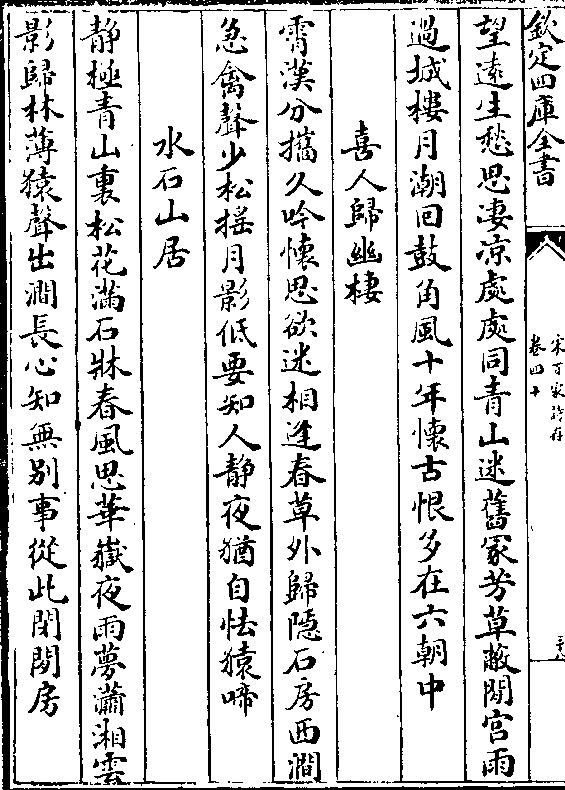 欽定四庫全書
宋百家詩存
卷四十
三十八
望遠生愁思凄凉處處同青山迷舊冢芳草蔽閒宮雨
過城樓月潮回鼓角風十年懷古恨多在六朝中
喜人歸幽棲
霄漢分攜久吟懷思欲迷相逢春草外歸隱石房西澗
急禽聲少松揺月影低要知人静夜猶自怯猿啼
水石山居
静極青山裏松花滿石牀春風思華嶽夜雨夢瀟湘雲
影歸林薄猿聲出澗長心知無别事從此閉閒房